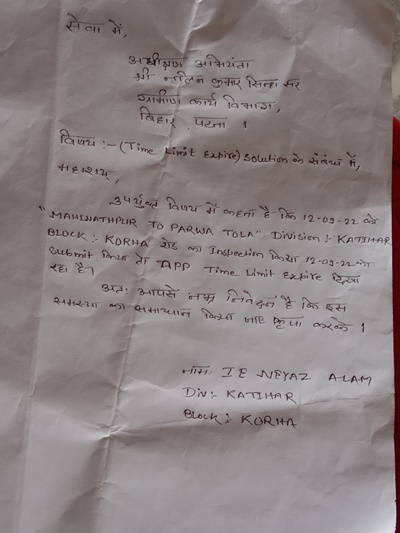 सेवा में,
अधीक्षण अभियंता
श्री नलिन कुमार सिन्हा सर
ग्रामीण कार्य विभाग,
बिहार, पटना ।
विषय :- (Time Limit Expire) Solution के संबंध में,
महाशय,
उपर्युक्त विषय में कहना है कि 12-09-22 को
"MAHINATHPUR TO PARWA TOLA" Division :- KATIHAR
BLOCK :- KORHA रोड का Inspection किया 12-09-22 को
Submit किया तो APP Time Limit Expire दिखा
रहा है।
अतः आपसे नम्र निवेदन है कि इस
समस्या का समाधान किया जाए कृपा करके ।
नाम: IE NEYAZ ALAM
Div:- KATIHAR
Block :- KORHA